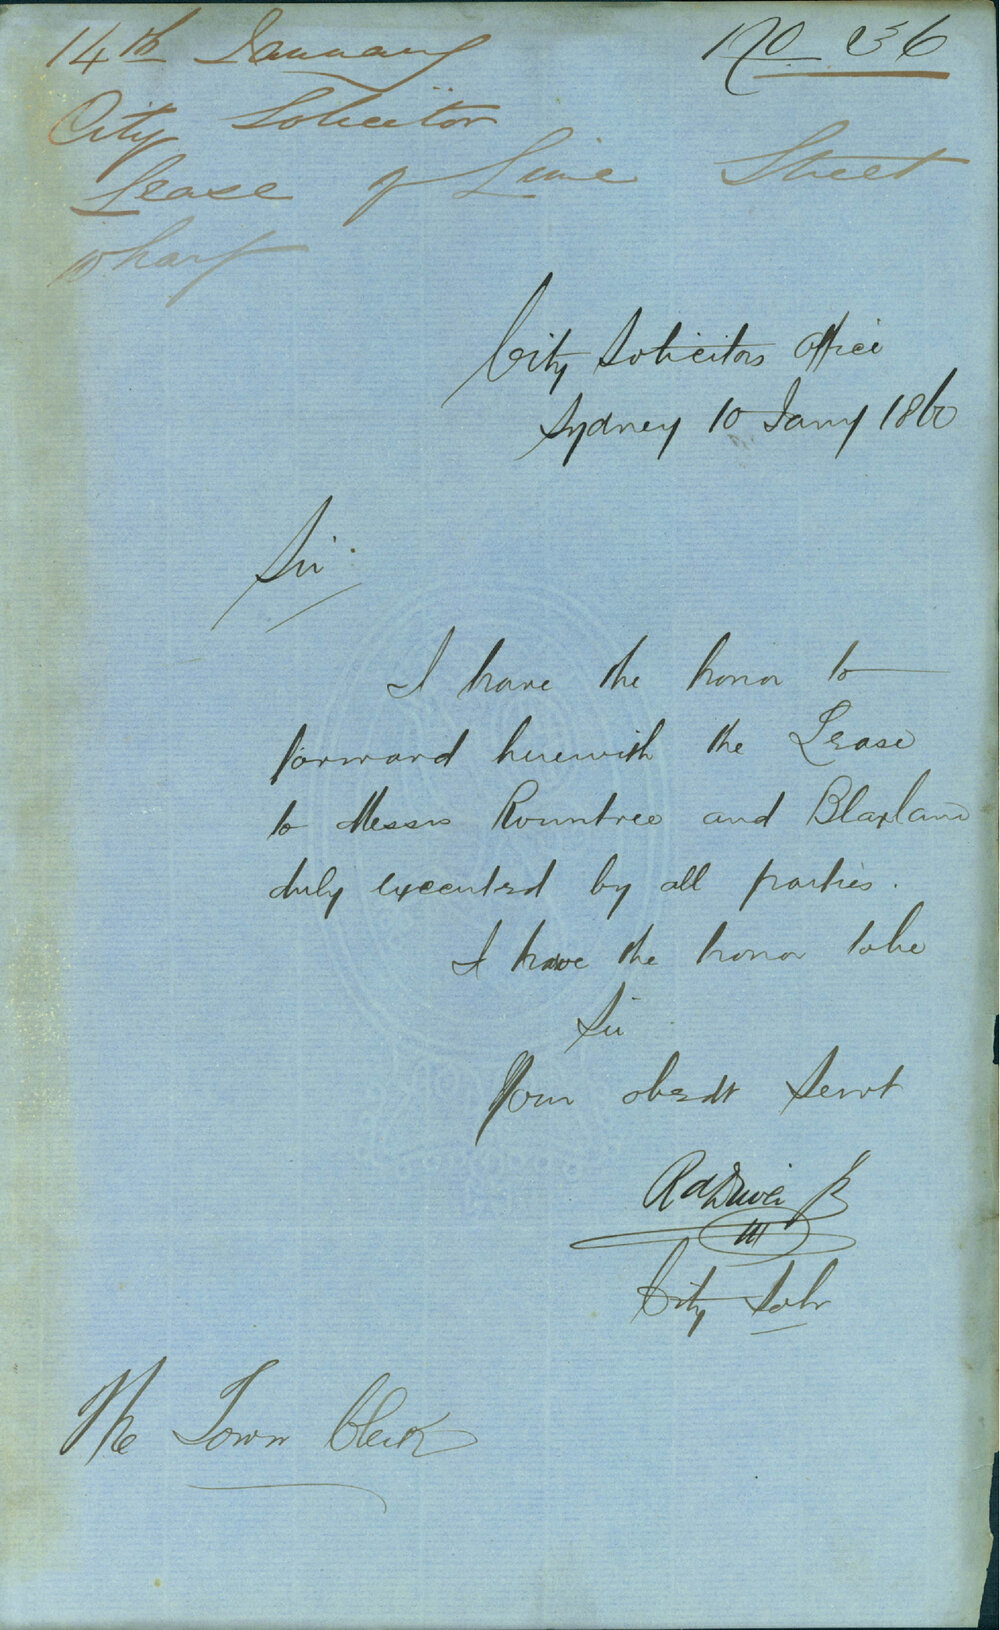 14th January
No 36
City Solicitor
Lease of Lime Street
Wharf
City Solicitors Office
Sydney 10 Jany 1860
Sir
I have the honor to
forward herewith the Lease
to Messrs Rountree and Blaxland
duly executed by all parties.
I have the honor to be
Sir
Your obedt Servt
Rd Driver Jr
City Solr
The Town Clerk